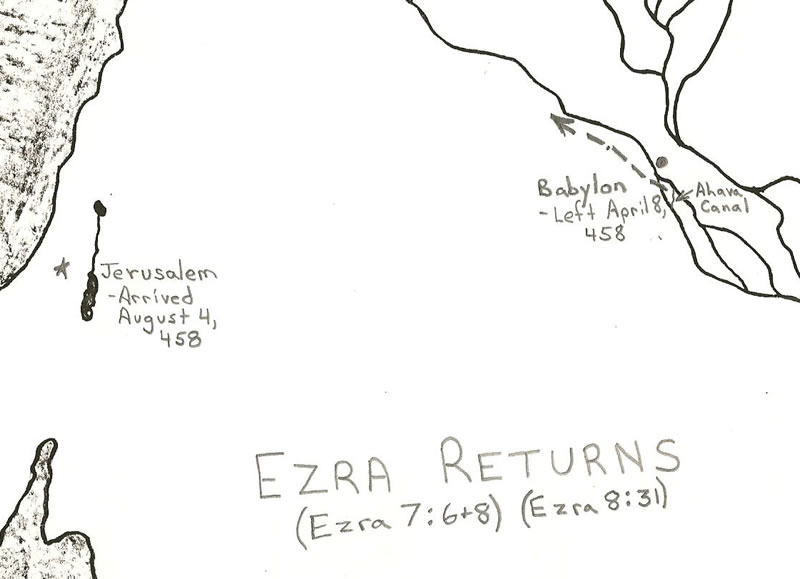 Babylon
-Left April 8,
458
Ahava
Canal
Jerusalem
-Arrived
August 4,
458
EZRA RETURNS
(Ezra 7:6+8) (Ezra 8:31)